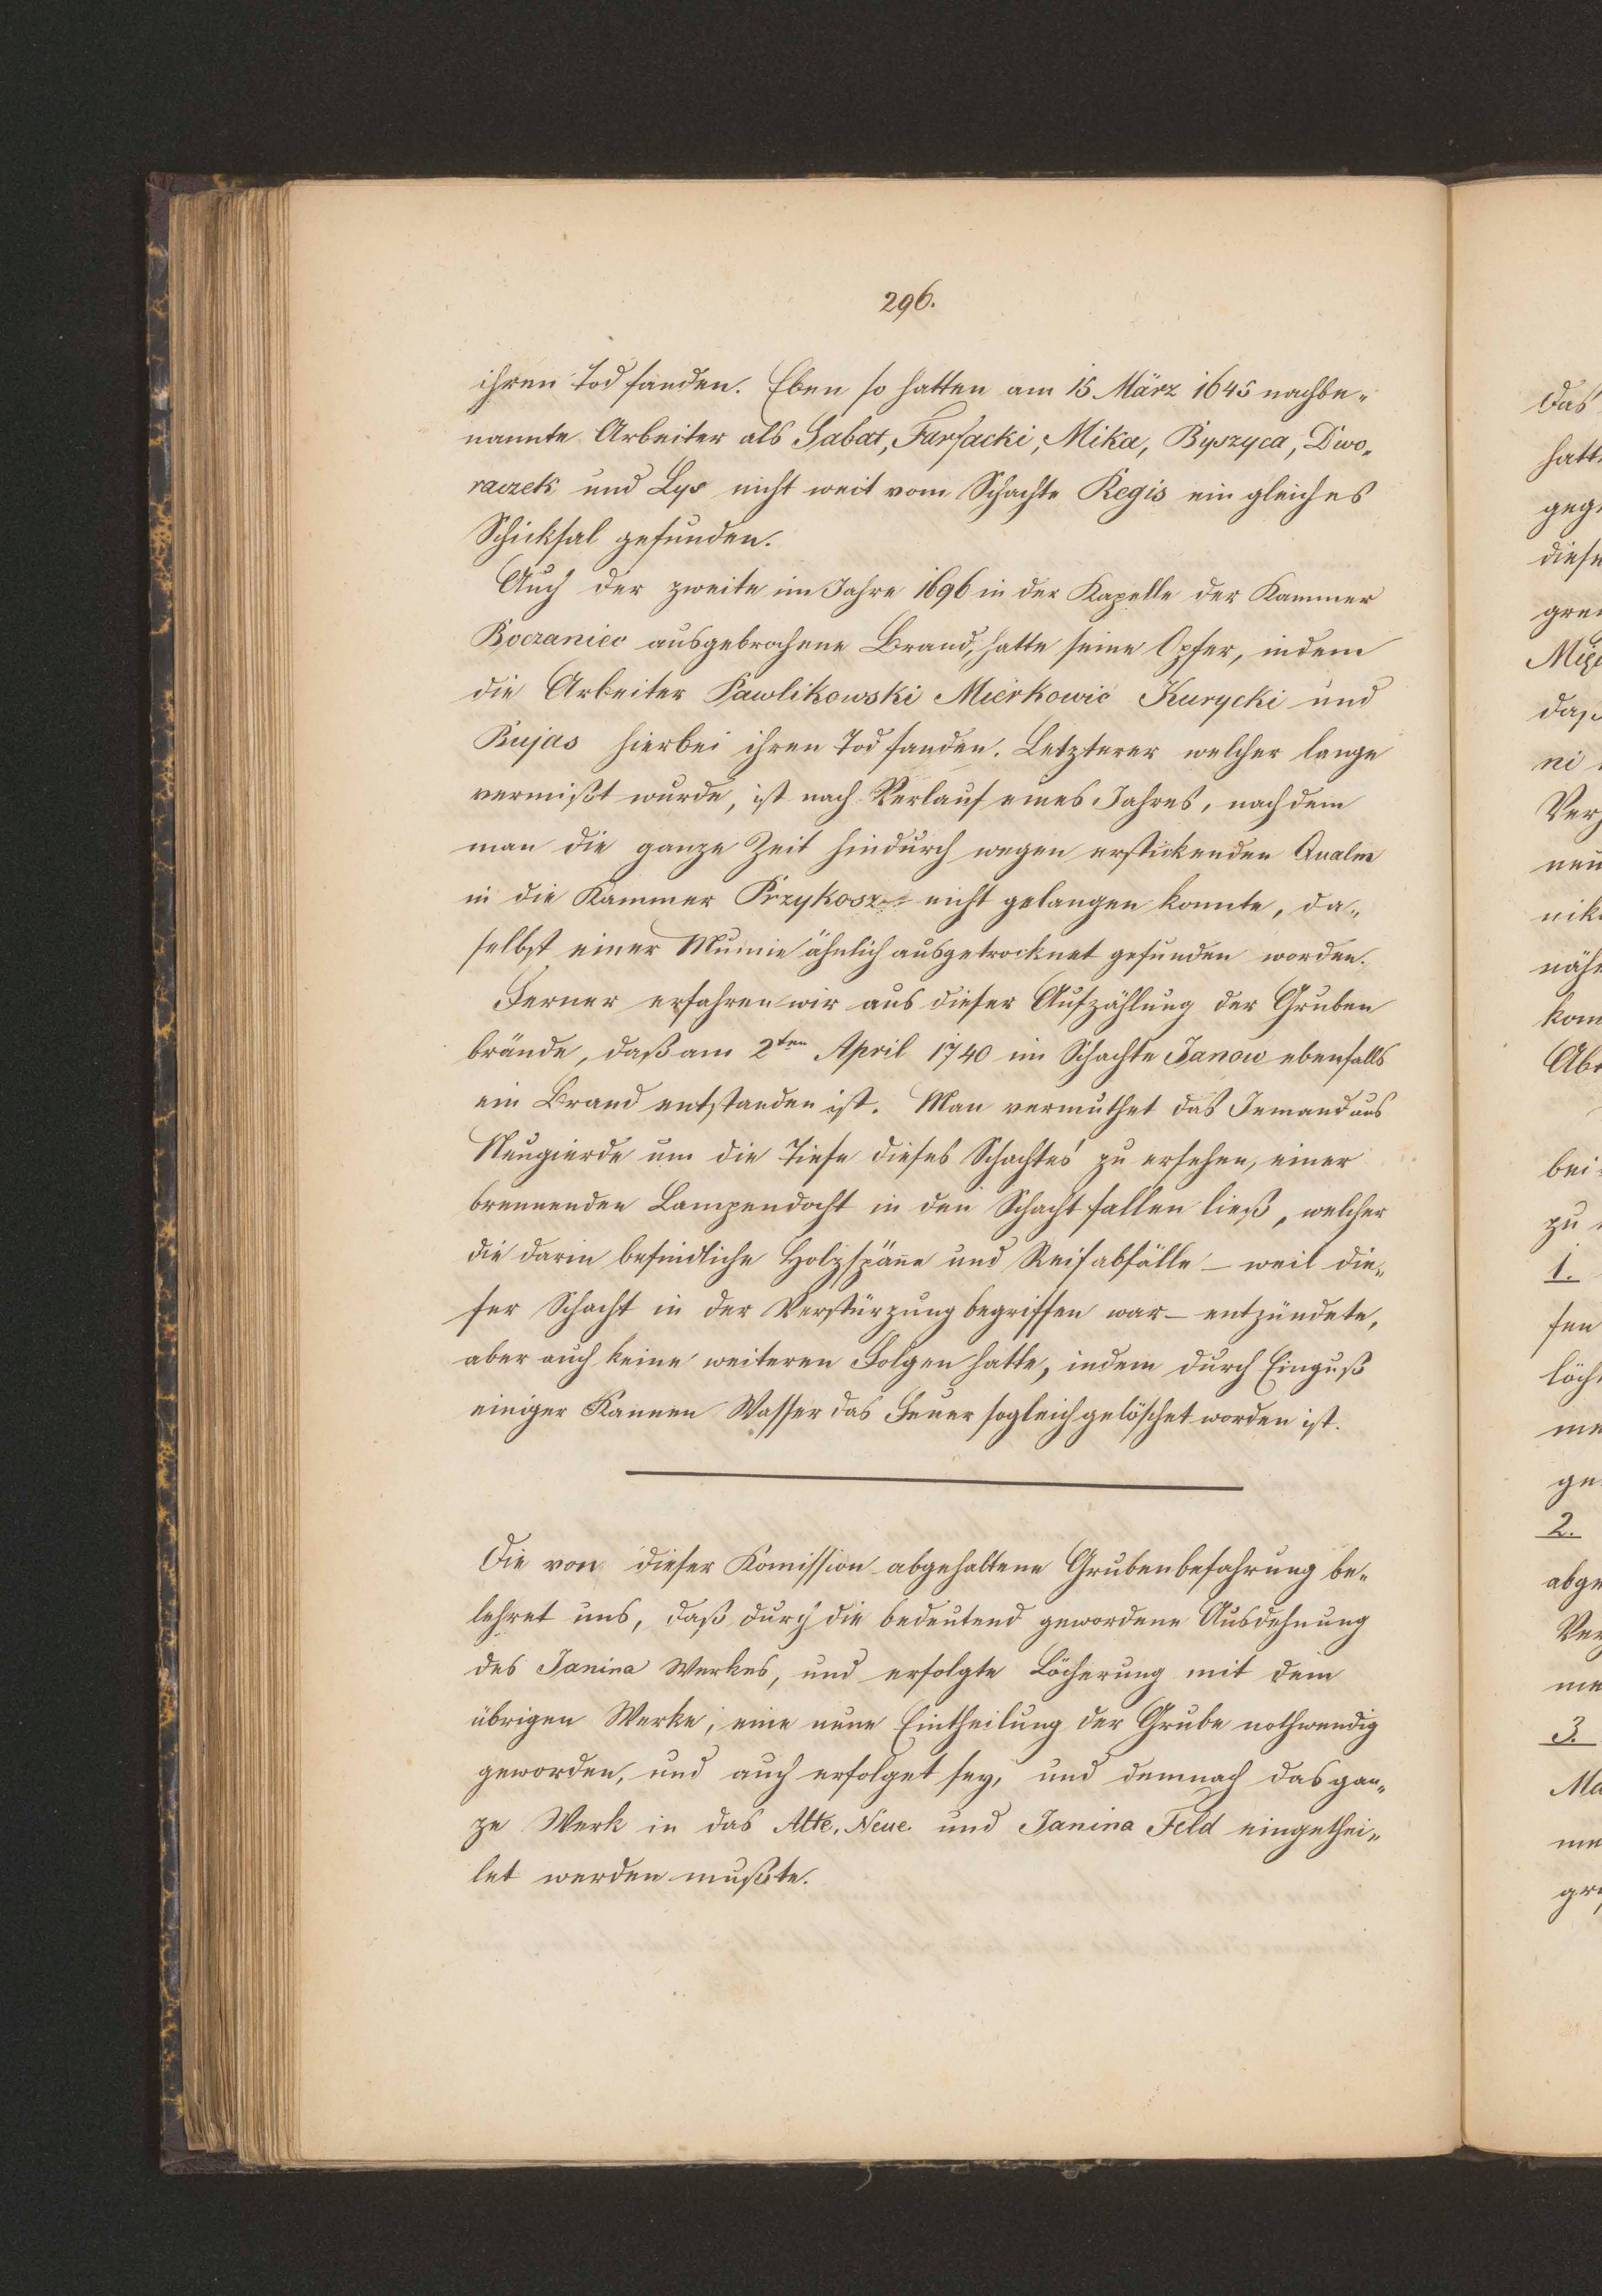 296.
ihren Tod fanden. Eben so hatten am 15 März 1645 nachbe„
nannte Arbeiter als Sabat, Farfacki, Mika, Byszyca, Dwo„
raczek und Lys nicht weit vom Schachte Regis ein gleiches
Schicksal gefunden.
Auch der zweite im Jahre 1696 in der Kapelle der Kammer
Boczaniec ausgebrochene Brand, hatte seine Opfer, indem
die Arbeiter Pawlikowski Mierkowic Kurycki und
Bujas hierbei ihren Tod fanden. Letzterer welcher lange
vermißt wurde, ist nach Verlauf eines Jahres, nachdem
man die ganze Zeit hindurch wegen erstickenden Qualm
in die Kammer Przykosz nicht gelangen konnte, da„
selbst einer Mumie ähnlich ausgetrocknet gefunden worden.
Ferner erfahren wir aus dieser Aufzählung der Gruben
brände, daß am 2ten April 1740 im Schachte Janow ebenfalls
ein Brand entstanden ist. Man vermuthet das Jemand aus
Neugierde um die Tiefe dieses Schachtes zu ersehen, einer
brennenden Lampendocht in den Schacht fallen ließ, welcher
die darin befindliche Holzspäne und Reifabfälle – weil die„
ser Schacht in der Verstürzung begriffen war – entzündete,
aber auch keine weiteren Folgen hatte, indem durch Einguß
einiger Kannen Wasser das Feuer sogleich gelöschet worden ist.
Die von dieser Komission abgehaltene Grubenbefahrung be„
lehret uns, daß durch die bedeutend gewordene Ausdehnung
des Janina Werkes, und erfolgte Löcherung mit dem
übrigen Werke, eine neue Eintheilung der Grube nothwendig
geworden, und auch erfolget sey, und demnach das gan„
ze Werk in das Alte, Neue und Janina Feld eingethei„
let werden mußte.
Das
hatt
gege
diese
gren
das
ni
neu
nik
näh
kom
bei
zu
1.
sen
löch
me
ge
2.
abge
Ver
me
3.
Ma
me